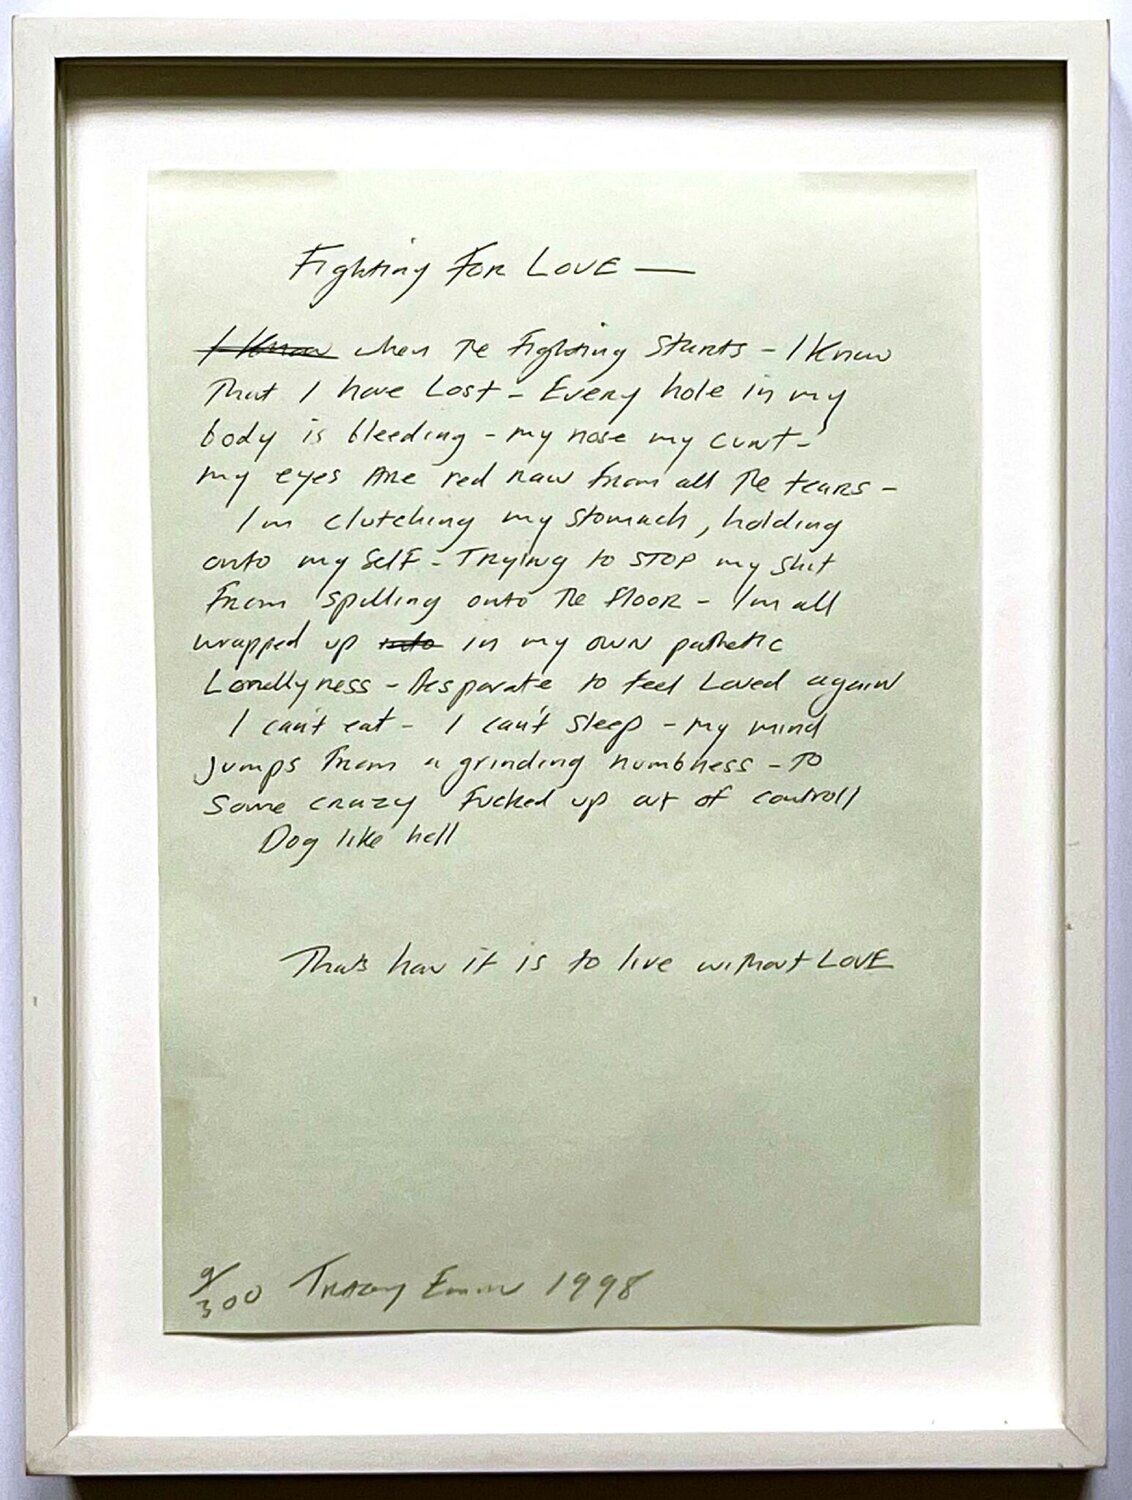 Fighting For LOVE —
I Know when Te Fighting Starts - I Know
That I have Lost - Every hole in my
body is bleeding - my nose my cunt -
my eyes Are red raw from all The tears -
I'm clutching my stomach, holding
onto my Self - Trying to STOP my shit
From spilling onto The floor - I'm all
wrapped up into in my own pathetic
Lonellyness - Desparate to feel Loved again
I can't eat - I can't sleep - my mind
Jumps from a grinding numbness - To
Some crazy Fucked up out of controll
Dog like hell
Thats how it is to live without LOVE
9/300 Tracey Emin 1998